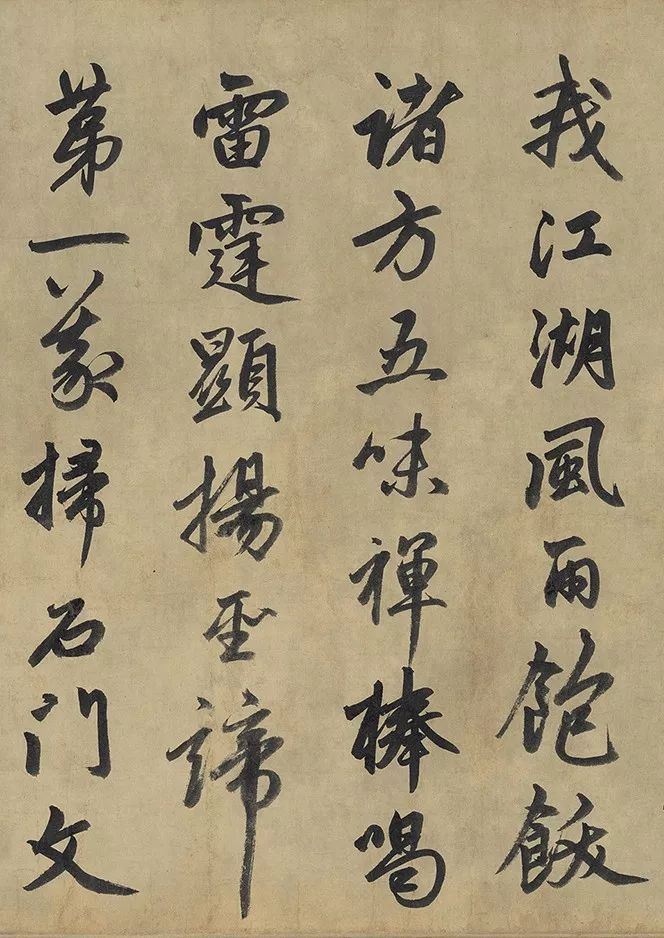 我江湖風雨飽飫
诸方五味禅棒喝
雷霆顯揚聖諦
第一義掃石門文